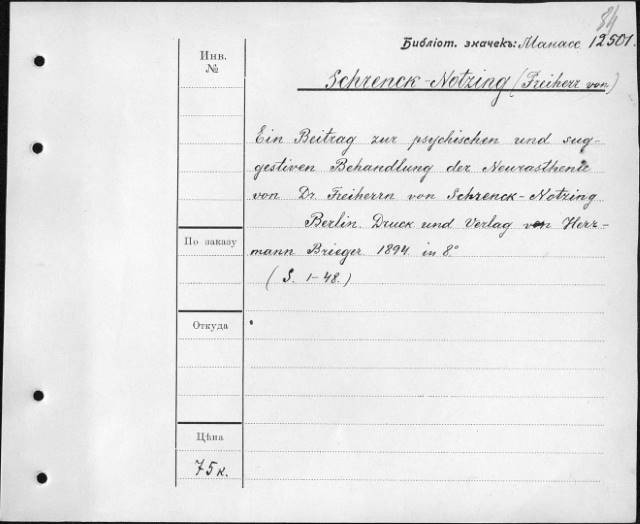 84
Библіот. значекъ: Манасс 12501.
Инв.
№
Schrenck-Notzing (Freiherr von)
Ein Beitrag zur psychischen und sug-
gestiven Behandlung der Neurasthenie
von Dr. Freiherrn von Schrenck-Notzing
Berlin. Druck und Verlag von Herr-
mann Brieger 1894 in 8°
(S. 1-48.)
По заказу
Откуда
Цѣна
75 к.